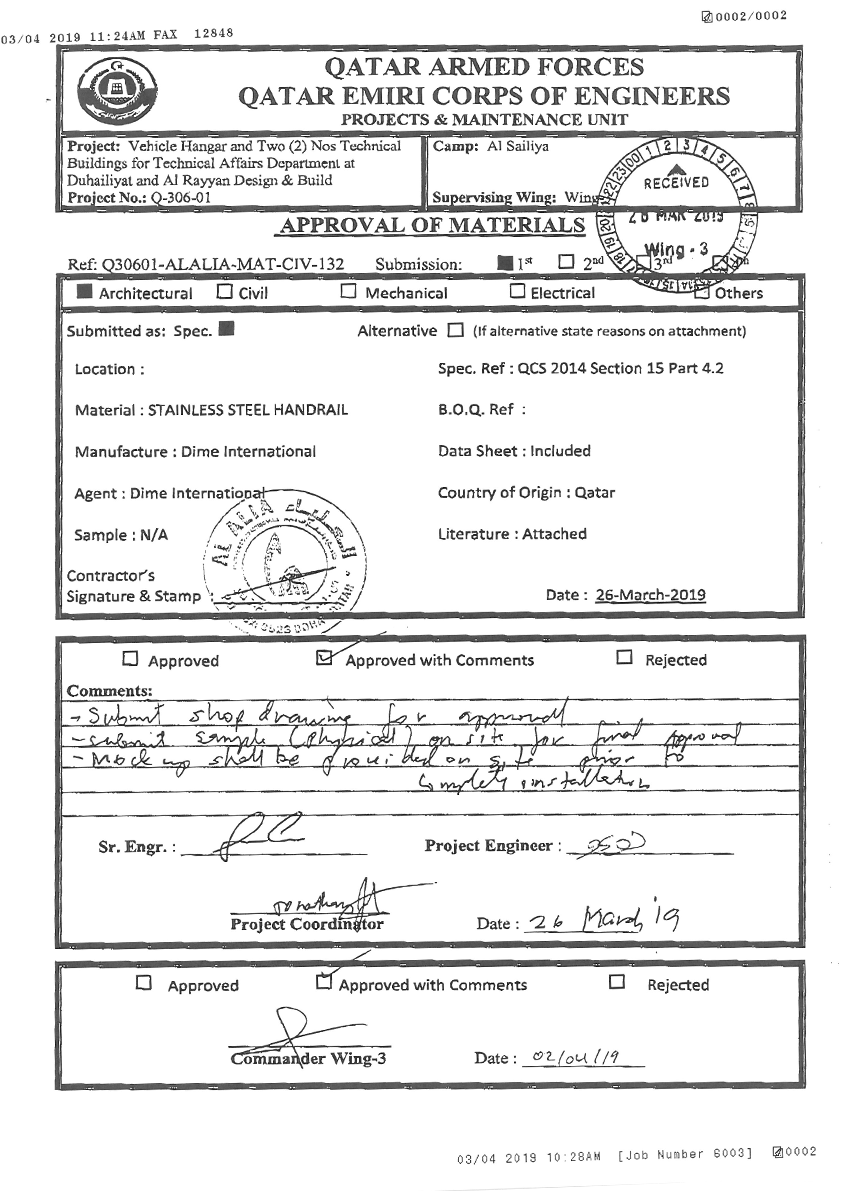 0002/0002
03/04 2019 11:24AM FAX 12848
QATAR ARMED FORCES
QATAR EMIRI CORPS OF ENGINEERS
PROJECTS & MAINTENANCE UNIT
Project: Vehicle Hangar and Two (2) Nos Technical
Buildings for Technical Affairs Department at
Duhailiyat and Al Rayyan Design & Build
Project No.: Q-306-01
Camp: Al Sailiya
Supervising Wing: Wing
RECEIVED
26 MAR 2019
Wing - 3
APPROVAL OF MATERIALS
Ref: Q30601-ALALIA-MAT-CIV-132 Submission: 1st 2nd 3rd
Architectural Civil Mechanical Electrical Others
Submitted as: Spec. Alternative (If alternative state reasons on attachment)
Location : Spec. Ref : QCS 2014 Section 15 Part 4.2
Material : STAINLESS STEEL HANDRAIL B.O.Q. Ref :
Manufacture : Dime International Data Sheet : Included
Agent : Dime International Country of Origin : Qatar
Sample : N/A Literature : Attached
AL ALIA العلياء
Contractor's
Signature & Stamp : Date : 26-March-2019
Approved Approved with Comments Rejected
Comments:
- Submit shop drawing for approval
- submit sample (physical) on site for final approval
- Mock up shall be provided on site prior to
complete installation
Sr. Engr. : Project Engineer :
Project Coordinator Date : 26 March '19
Approved Approved with Comments Rejected
Commander Wing-3 Date : 02/04/19
03/04 2019 10:28AM [Job Number 6003] 0002